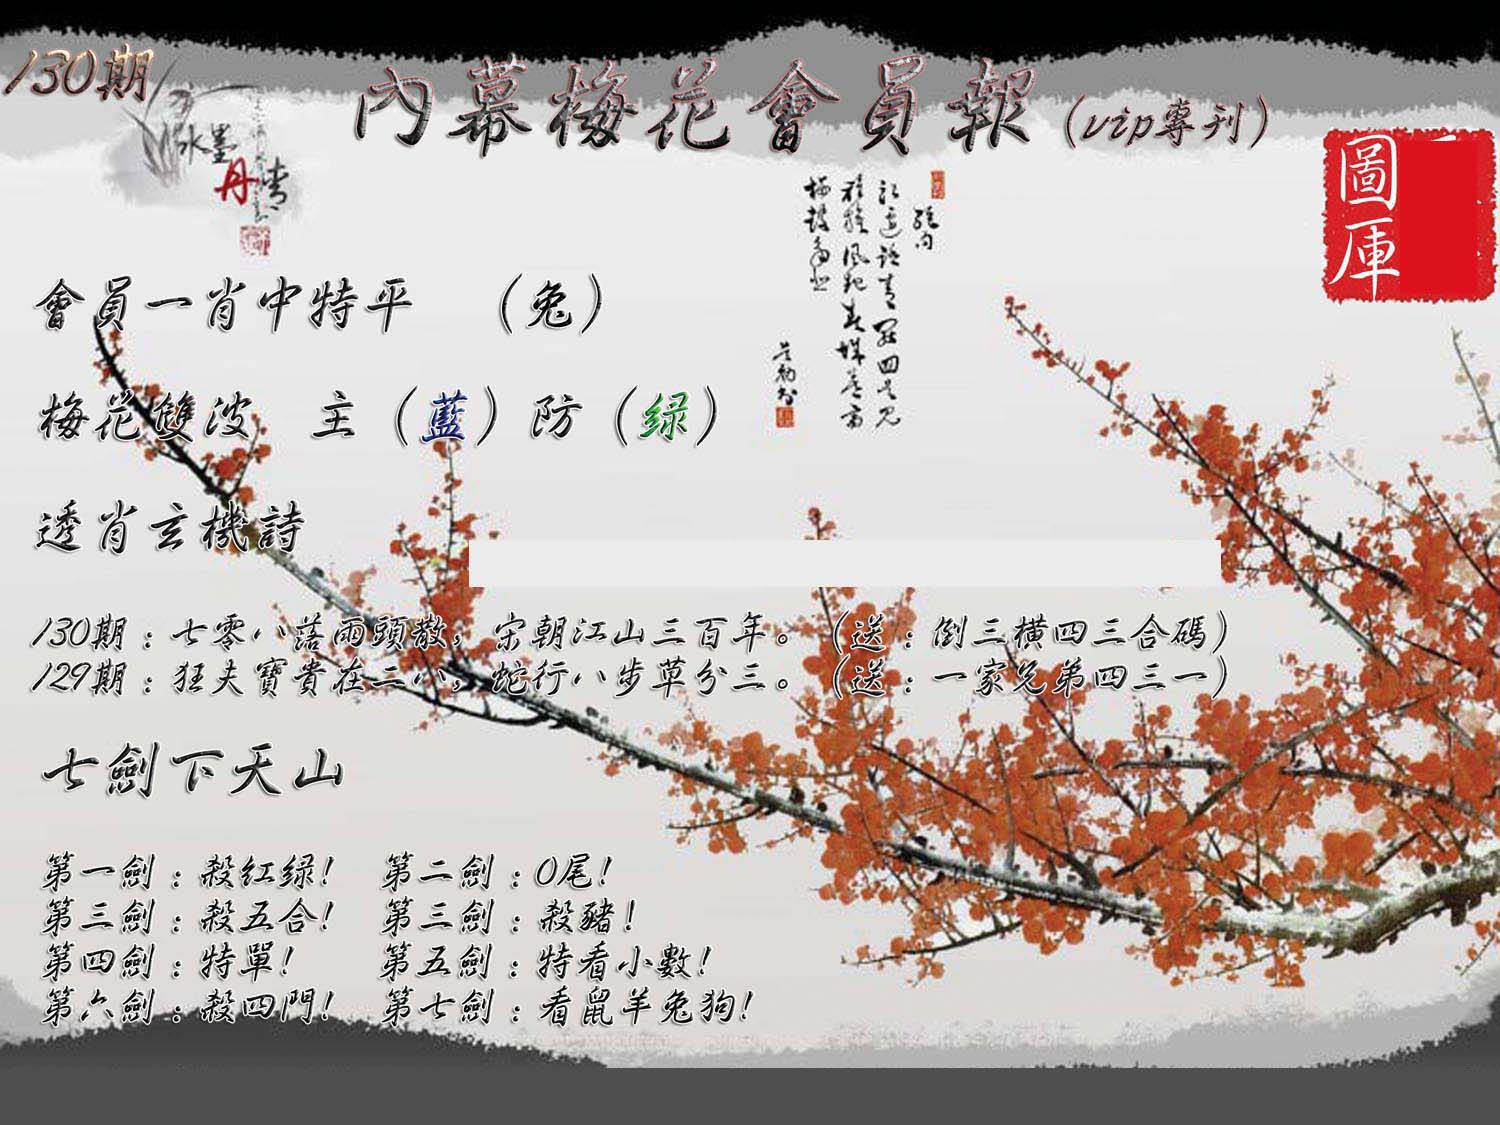 130期
內幕梅花會員報(vip專刊)
水墨
丹青
圖庫
會員一肖中特平 (兔)
梅花雙波 主(藍)防(绿)
透肖玄機詩
130期:七零八落雨頭散,宋朝江山三百年。(送:倒三橫四三合碼)
129期:狂夫寶貴在二小,蛇行八步草分三。(送:一家兄第四三一)
七劍下天山
第一劍:殺红绿! 第二劍:0尾!
第三劍:殺五合! 第三劍:殺豬!
第四劍:特單! 第五劍:特看小數!
第六劍:殺四門! 第七劍:看鼠羊兔狗!